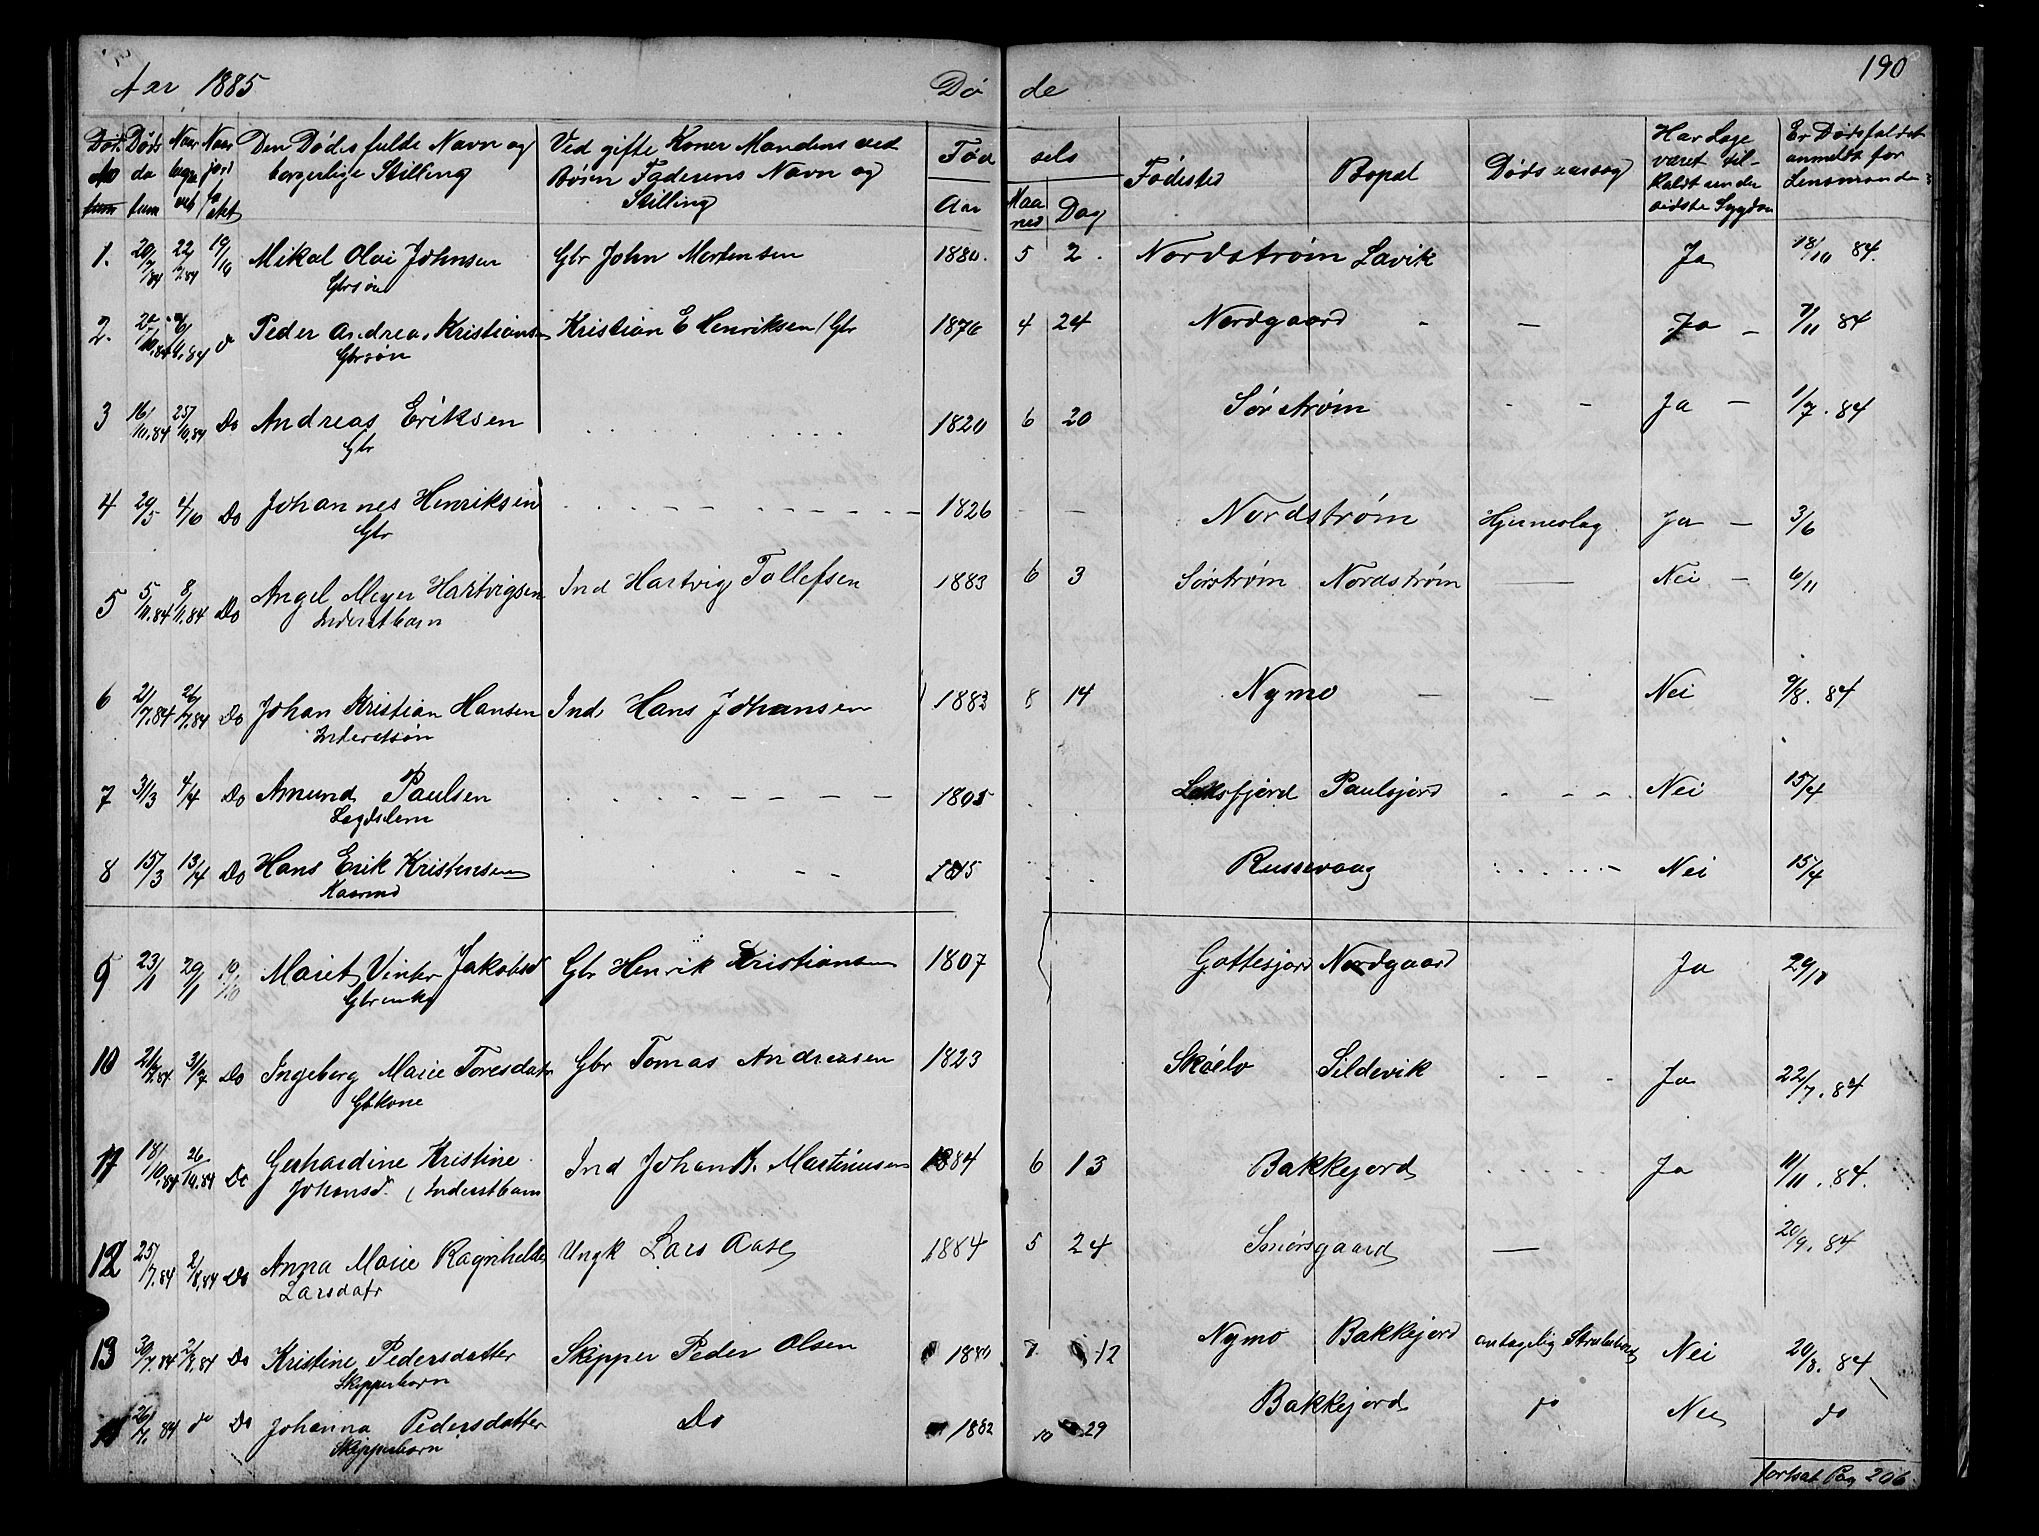 Aar 1885 Dø de 190
Døds Døds Naar Naar Den Dødes fulde Navn og Ved gifte Koner Mandens ved Fød sels Fødested Bopæl Dødsaarsag Har Læge Er Dødsfaldet
da begra jord borgerlige Stilling Børn Faderens Navn og været til- anmeldt for
tum tum vet fæ stet Stilling Aar Maa ned Dag kaldt under sidste Sygdom Lensmanden
1. 20/7/84 22/7/84 19/10 Mikal Olai Johnsen Gbr John Mortensen 1880. 5 2. Nordstrøm Lavik Ja 18/10 84.
Gbrsøn
2. 6/11.84 Do Peder Andreas Kristiansen Kristian E Henriksen / Gbr 1876 4 24 Nordgaard - - Ja - 7/11 84
Gbrsøn
3 16/10.84 25/10.84 Do Andreas Eriksen 1820 6 20 Sørstrøm - - Ja - 1/7. 84
Gbr
4 29/5 4/6 Do Johannes Henriksen 1826 - - Nordstrøm Hjerneslag Ja - 3/6
Gbr
5 5/11.84 8/11.84 Do Angel Meyer Hartvigsen Ind Hartvig Tollefsen 1883 6 3 Sørstrøm Nordstrøm - Nei - 6/11
Inderstbarn
6 21/7.84 26/7.84 Do Johan Kristian Hansen Ind. Hans Johansen 1883 8 14 Nymo - - Nei 9/8. 84
Inderstsøn
7 31/3 4/4 Do Amund Paulsen 1805 Leksfjord Paulsjord - - - Nei 15/4
Lægdslem
8 15/3 13/4 Do Hans Erik Kristensen 1815 Russevaag Nei 15/4
Kaarmd
9 23/1 29/1 19/10 Maret Vinter Jakobsd Gbr Henrik Kristiansen 1807 Gottesjord Nordgaard Ja
Gbrenke
10 21/7.84 31/7 Do Ingeberg Marie Toresdatr Gbr Tomas Andreasen 1823 Skoelv Sildevik - - - Ja 22/7. 84
Gbkone
11 18/10.84 26/10.84 Do Gerhardine Kristine Ind Johan A. Martinusen 1884 6 13 Bakkejord Ja 11/11. 84.
Johansd. (Inderstbarn
12 25/7.84 2/8.84 Do Anna Marie Ragnhilda Ungk Lars Aase 1884 5 24 Smørsgaard - 20/9. 84
Larsdatr
13 30/7.84 2/8.84 Do Kristine Pedersdatter Skipper Peder Olsen 1880 7. 12 Nymo Bakkejord antagelig Strubehoste Nei 20/8. 84
Skipperbarn
26/7. 84 do Do Johanna Pedersdatter Do 1882 10 29 Bakkejord do Nei do
Skipperbarn
fortsat Pag 206